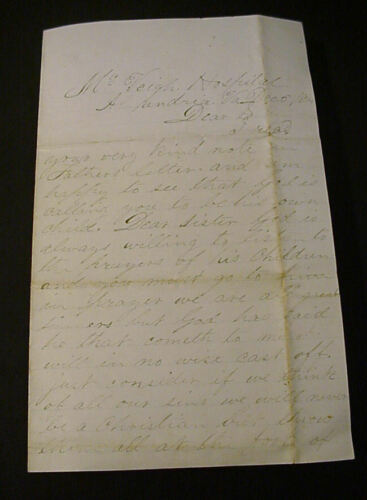 Mc Veigh Hospital
Alxandria Va Dec
Dear
I read
your very kind note in
Fathers letter and am
happy to see that God is
calling you to be his own
child. Dear sister God is
always willing to listen to
the prayers of his children
and you must go to him
in prayer we are all great
sinners but God has said
he that cometh to me I
will in no wise cast off.
Just consider if we think
of all our sins we will never
be a Christian but throw
them all at the foot of